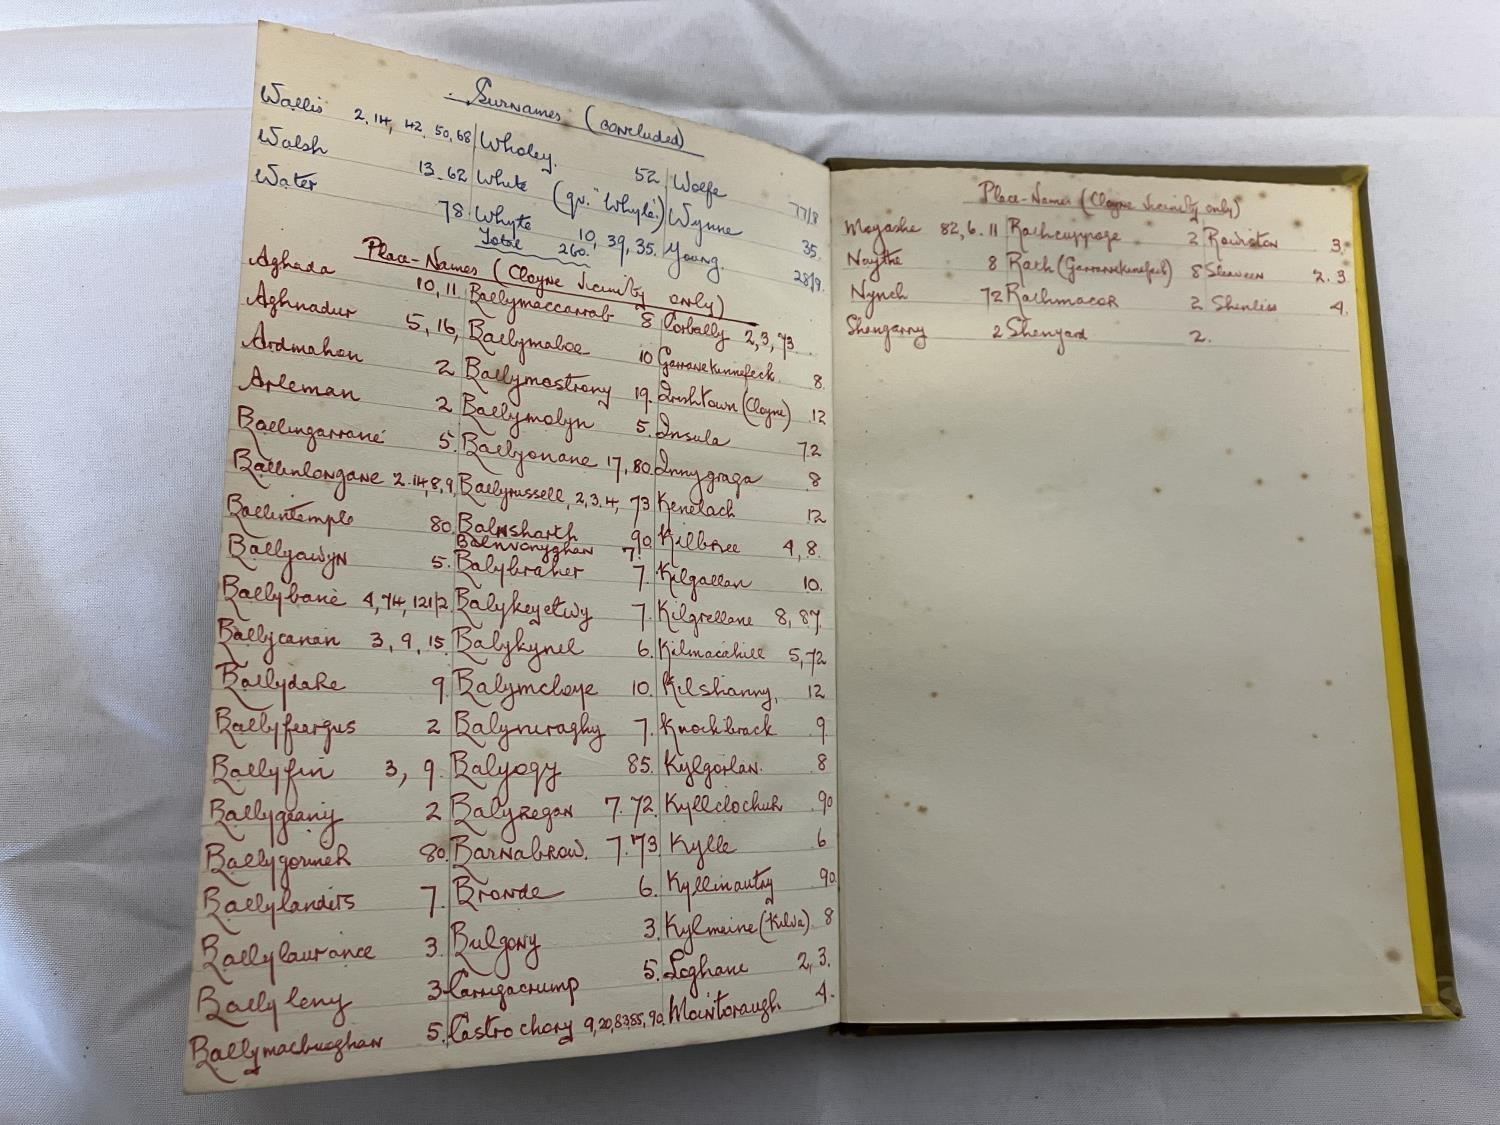 Surnames (concluded)
Wallis 2.14, 42. 50, 68 Wholey. 52 Wolfe 77/8
Walsh 13. 62 White (qv. "Whyte.) Wynne 35.
Water 78. Whyte 10, 39, 35. Young. 28/9.
Total 260.
Place-Names (Cloyne Vicinity only)
Aghada 10, 11. Ballymaccarrab 8 Corbally 2, 3, 73.
Aghnadur 5, 16, Ballymaloe 10 Garranekinnefeck. 8.
Ardmahon 2 Ballymastrony 19. Irishtown (Cloyne) 12
Arleman 2 Ballymolyn 5. Insula 72
Ballingarrané 5. Ballyonane 17, 80. Innygraga 8
Ballinlongane 2.14, 8, 9, Ballyrussell, 2, 3. 4, 73 Kenelach 12
Ballintemple 80. Balnsharth 90 Kilbree 4, 8.
Balnvonyghan 7.
Ballyawyn 5. Balybraher 7. Kilgallan 10.
Ballybane 4, 74, 121/2. Balykeyetwy 7. Kilgrellane 8, 87.
Ballycanan 3, 9, 15. Balykynel 6. Kilmacahill 5, 72
Ballydake 9. Balymcloye 10. Kilshanny, 12
Ballyfeargus 2 Balynuraghy 7. Knockbrack 9.
Ballyfin 3, 9. Balyogy 85. Kylgorlan. 8
Ballygeany 2 Balyregan 7. 72. Kyllclochuk 90
Ballygormek 80. Barnabrow. 7. 73 Kylle 6
Ballylandits 7. Bronde 6. Kyllinautry 90.
Ballylaurance 3. Bulgony 3. Kylmeine (Kilva). 8
Ballyleny 3 Carrigacrump 5. Loghane 2, 3.
Ballymacbueghan 5. Castrochory 9, 20, 83, 85, 90. Mointoraugh 4.
Place-Names (Cloyne Vicinity only)
Mogashe 82, 6. 11 Rathcuppoge 2 Rowiston 3.
Noythe 8 Rath (Garranekinnefeck) 8 Sleaveen 2. 3
Nynch 72 Rathmacok 2 Shenliss 4.
Shangarry 2 Shenyard 2.